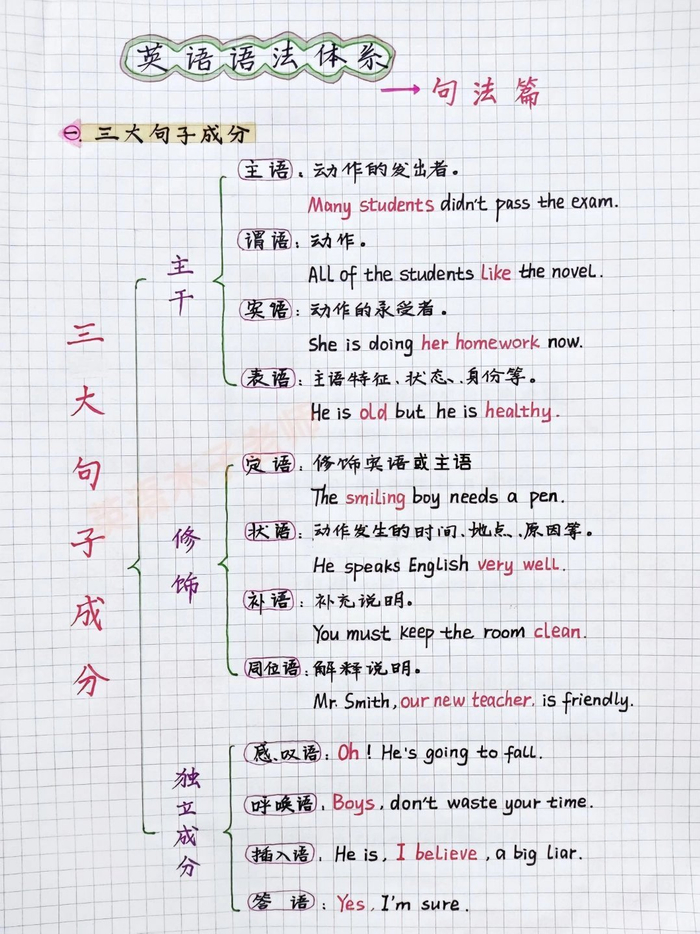 英语语法体系
→ 句法篇
一. 三大句子成分
三大句子成分
主干
主语：动作的发出者。
Many students didn't pass the exam.
谓语：动作。
All of the students like the novel.
宾语：动作的承受者。
She is doing her homework now.
表语：主语特征、状态、身份等。
He is old but he is healthy.
修饰
定语：修饰宾语或主语
The smiling boy needs a pen.
状语：动作发生的时间、地点、原因等。
He speaks English very well.
补语：补充说明。
You must keep the room clean.
同位语：解释说明。
Mr. Smith, our new teacher, is friendly.
独立成分
感叹语：Oh! He's going to fall.
呼唤语：Boys, don't waste your time.
插入语：He is, I believe, a big liar.
答语：Yes, I'm sure.